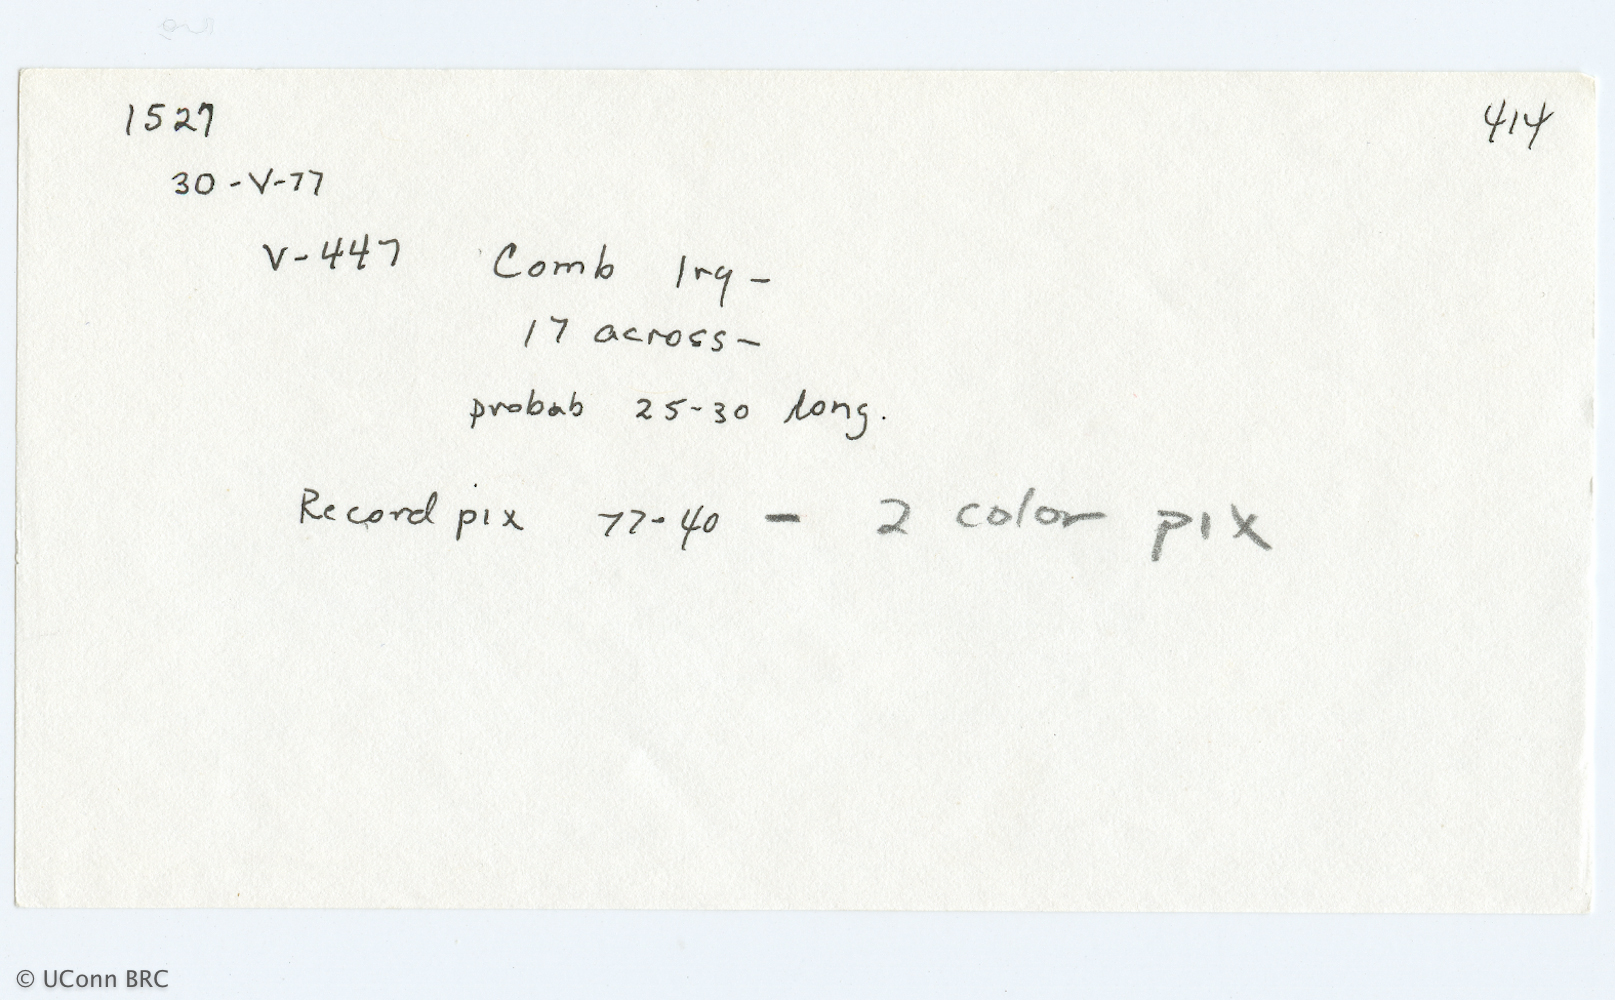 1527 414
30-V-77
V-447 Comb lrg-
17 across-
probab 25-30 long.
Record pix 77-40 - 2 color pix
© UConn BRC